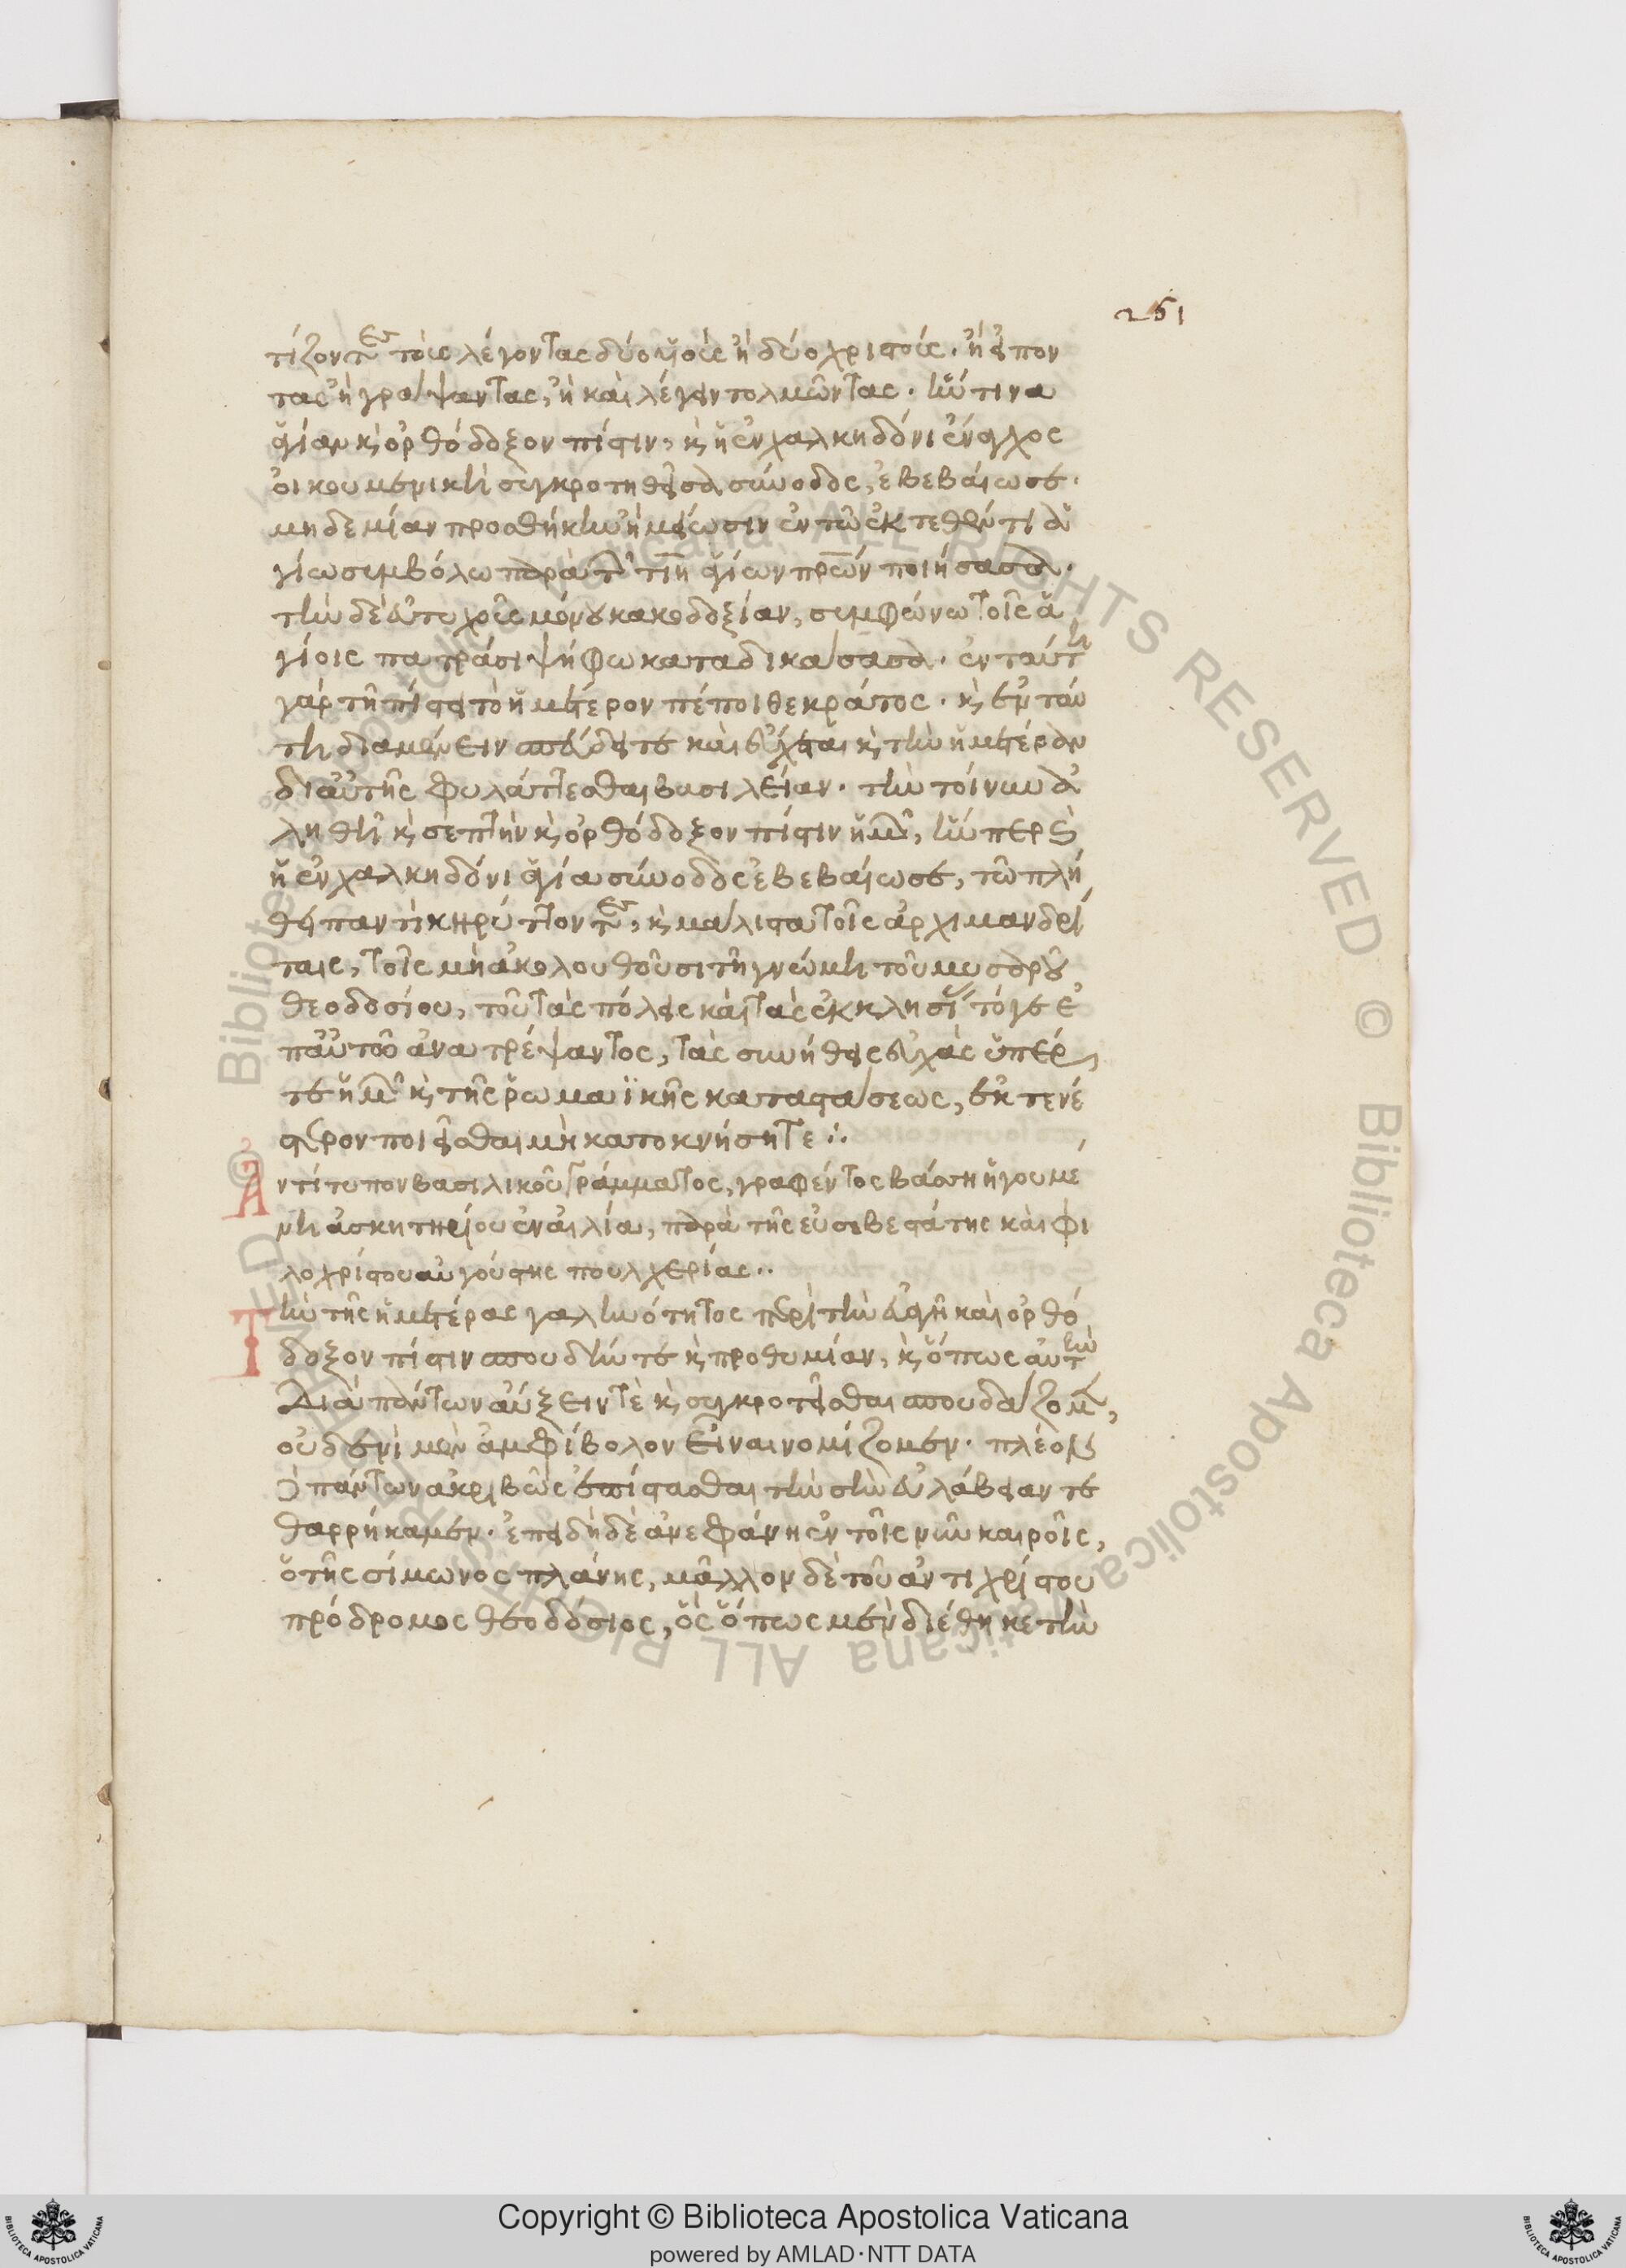 251
τίζοντες τοὺς λέγοντας δύο υἱοὺς ἢ δύο χριστούς· ἢ εἰπόν
τας ἢ γράψαντας, ἢ καὶ λέγειν τολμῶντας· ἥντινα
ἁγίαν κ(αὶ) ὀρθόδοξον πίστιν, κ(αὶ) ἡ ἐν χαλκηδόνι ἔναγχος
οἰκουμενικὴ συγκροτηθεῖσα σύνοδος, ἐβεβαίωσε·
μηδεμίαν προσθήκην ἢ μείωσιν ἐν τῶ ἐκτεθέντι ἁ
γίω συμβόλω παρὰ τῶν τιη ἁγίων πρῶν ποιήσασα·
τὴν δὲ εὐτυχοῦς μόνου κακοδοξίαν, συμφώνω τοῖς ἁ
γίοις πατράσι ψήφω καταδικάσασα· ἐν ταύτη
γὰρ τῆ πίστει τὸ ἡμέτερον πέποιθε κράτος· κ(αὶ) ἐν ταύ
τη διαμένειν σπεύδει τε καὶ εὔχεται κ(αὶ) τὴν ἡμετέραν
δι αὐτῆς φυλάττεσθαι βασιλείαν· τὴν τοίνυν ἀ
ληθῆ κ(αὶ) σεπτὴν κ(αὶ) ὀρθόδοξον πίστιν ἡμῶν, ἥνπερ κ(αὶ)
ἡ ἐν χαλκηδόνι ἁγία σύνοδος ἐβεβαίωσε, τῶ πλή
θει παντὶ κηρύττοντες, κ(αὶ) μάλιστα τοῖς ἀρχιμανδρί
ταις, τοῖς μὴ ἀκολουθοῦσι τῆ γνώμη τοῦ μυσαροῦ
θεοδοσίου, τοῦ τὰς πόλεις καὶ τὰς ἐκκλησίας τόγε ἐ
π αὐτοῦ ἀνατρέψαντος, τὰς συνήθεις εὐχὰς ὑπέρ
τε ἡμῶν κ(αὶ) τῆς ῥωμαϊκῆς καταστάσεως, ἐκτενέ
στερον ποιεῖσθαι μὴ κατοκνήσητε ∴
Ἀντίτυπον βασιλικοῦ γράμματος, γραφέντος βάσση ἡγουμέ
νη ἀσκητηρίου ἐν αἰλία, παρὰ τῆς εὐσεβεστάτης καὶ φι
λοχρίστου αὐγούστης πουλχερίας··
Τὴν τῆς ἡμετέρας γαληνότητος περὶ τὴν εὐαγῆ καὶ ὀρθό
δοξον πίστιν σπουδήν τε κ(αὶ) προθυμίαν, κ(αὶ) ὅπως αὐτὴν
διὰ πάντων αὔξειν τὲ κ(αὶ) συγκροτεῖσθαι σπουδάζομεν,
οὐδενὶ μὲν ἀμφίβολον εἶναι νομίζομεν· πλέον δὲ
πάντων ἀκριβῶς ἐπίστασθαι τὴν σὴν εὐλάβειαν τε
θαρρήκαμεν· ἐπειδὴ δὲ ἀνεφάνη ἐν τοῖς νῦν καιροῖς,
ὁ τῆς σίμωνος πλάνης, μᾶλλον δὲ τοῦ ἀντιχρίστου
πρόδρομος θεοδόσιος, ὃς ὅπως μὲν διέθηκε τὴν